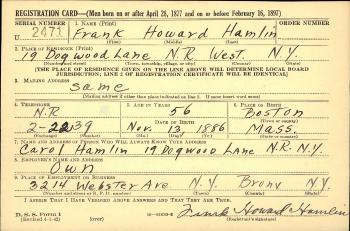 REGISTRATION CARD—(Men born on or after April 28, 1877 and on or before February 16, 1897)
SERIAL NUMBER
1. NAME (Print)
ORDER NUMBER
U 2471
Frank Howard Hamlin
(First) (Middle) (Last)
2. PLACE OF RESIDENCE (Print)
19 Dogwood Lane N.R. West. N.Y.
(Number and street) (Town, township, village, or city) (County) (State)
[THE PLACE OF RESIDENCE GIVEN ON THE LINE ABOVE WILL DETERMINE LOCAL BOARD JURISDICTION; LINE 2 OF REGISTRATION CERTIFICATE WILL BE IDENTICAL]
3. MAILING ADDRESS
same
(Mailing address if other than place indicated on line 2. If same insert word same)
4. TELEPHONE
5. AGE IN YEARS
6. PLACE OF BIRTH
N.R
56
Boston
DATE OF BIRTH
(Town or county)
2-2239
Nov. 13 1886
Mass.
(Exchange) (Number)
(Mo.) (Day) (Yr.)
(State or country)
7. NAME AND ADDRESS OF PERSON WHO WILL ALWAYS KNOW YOUR ADDRESS
Carol Hamlin 19 Dogwood Lane N.R. N.Y.
8. EMPLOYER'S NAME AND ADDRESS
Own
9. PLACE OF EMPLOYMENT OR BUSINESS
3214 Webster Ave N.Y. Bronx N.Y.
(Number and street or R. F. D. number) (Town) (County) (State)
I AFFIRM THAT I HAVE VERIFIED ABOVE ANSWERS AND THAT THEY ARE TRUE.
D. S. S. Form 1
(Revised 4-1-42) (over)
Frank Howard Hamlin
(Registrant's signature)